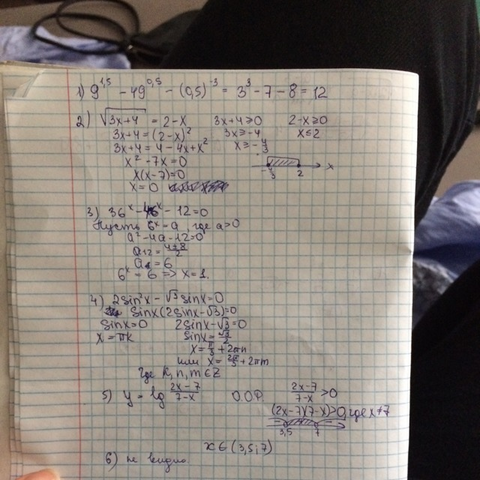 1) 9^1,5 - 49^0,5 - (0,5)^-3 = 3^3 - 7 - 8 = 12
2) √3x+4 = 2-x   3x+4≥0   2-x≥0
3x+4 = (2-x)²   3x≥-4   x≤2
3x+4 = 4-4x+x²   x≥-4/3
x² - 7x = 0
x(x-7)=0   2   x
x=0
3) 36^x - 4·6^x - 12=0
Пусть 6^x = a, где a>0
a² - 4a - 12=0
a12 = 4±8/2
a = 6
6^x = 6 => x=1.
4) 2sin²x - √3 sinx=0
sinx(2sinx-√3)=0
sinx=0   2sinx-√3=0
x = πk   sinx=√3/2
x = π/3 + 2πn
или x = 2π/3 + 2πm
Где k,n,m∈Z
5) y = lg 2x-7/7-x   О.О.Р   2x-7/7-x >0
(2x-7)(7-x)>0, где x≠7
3,5   7
x∈(3,5;7)
6) не видно